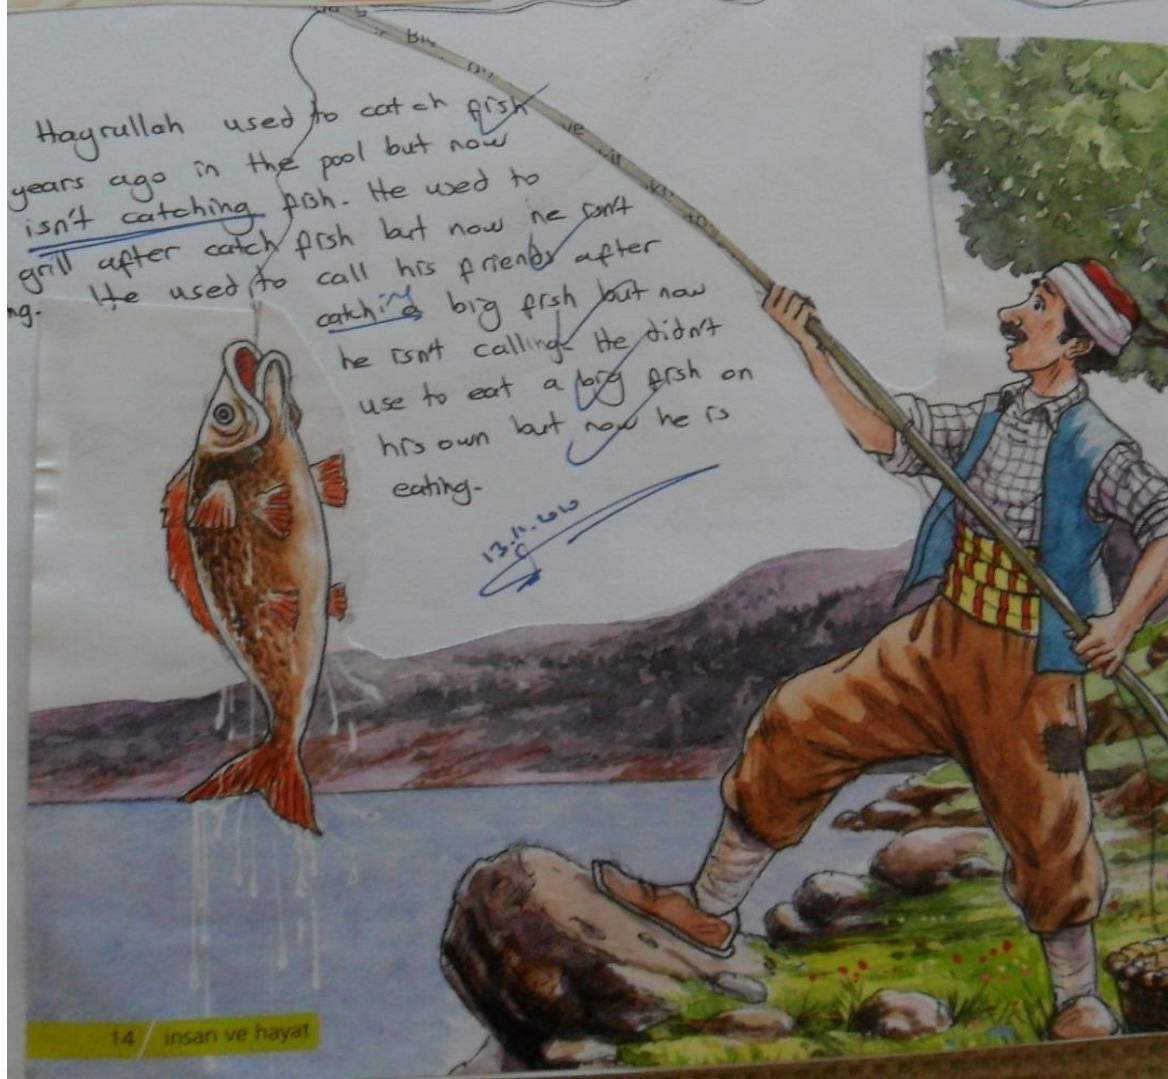 Hayrullah used to catch fish
years ago in the pool but now
isn't catching fish. He used to
grill after catch fish but now he isn't
ng. He used to call his friends after
catching big fish but now
he isn't calling. He didn't
use to eat a big fish on
his own but now he is
eating.
14 / insan ve hayat